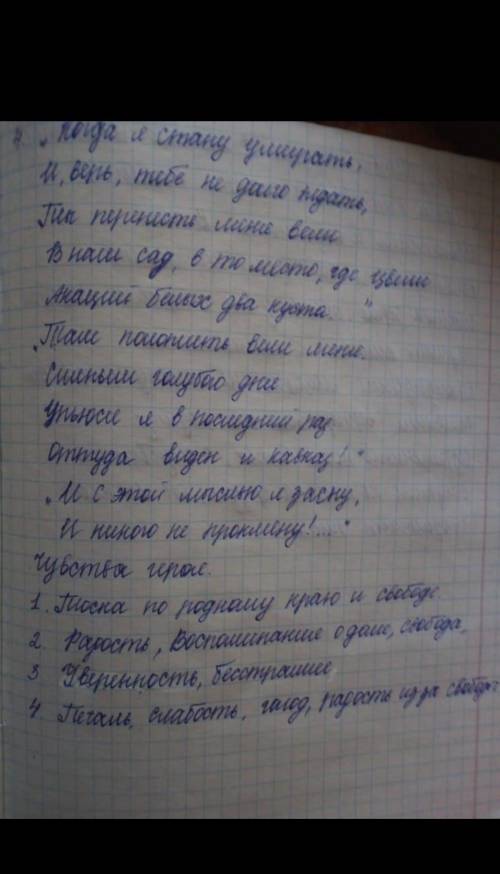 4. „Когда я стану умирать,
И, верь, тебе не долго ждать,
Ты перенесть меня вели
В наш сад, в то место, где цвели
Акаций белых два куста. "
„Там положить вели меня.
Сияньем голубого дня
Упьюся я в последний раз.
Оттуда виден и Кавказ! "
„И с этой мыслью я засну,
И никого не прокляну!... "
Чувства героя.
1. Тоска по родному краю и свободе.
2. Радость, Воспоминание о доме, свобода,
3 Уверенность, бесстрашие
4. Печаль, слабость, голод, радость из за свободы